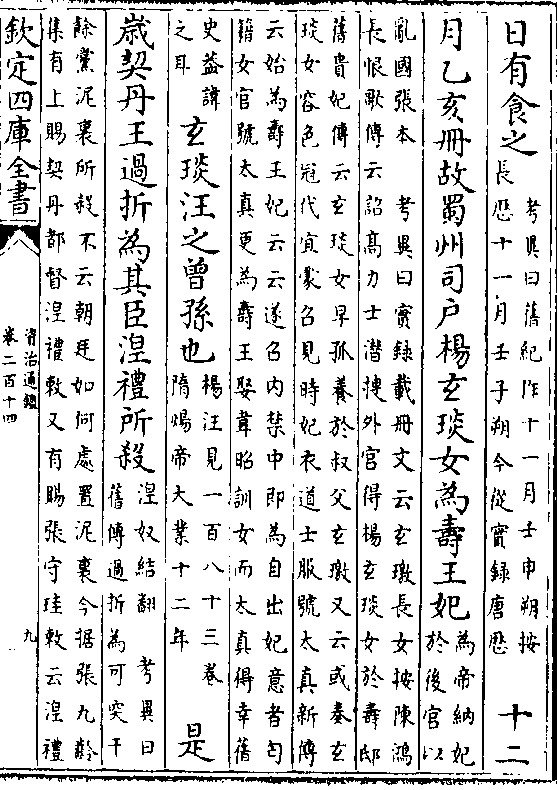 日有食之
考異曰舊紀作十一月壬申朔按
長厯十一月壬子朔今從實録唐厯
十二
月乙亥冊故蜀州司户楊玄琰女為壽王妃
為帝納妃
於後宮以
亂國張本　考異曰實録載冊文云玄璬長女按陳鴻
長恨歌傳云詔髙力士潛捜外宮得楊玄琰女於壽邸
舊貴妃傳云玄琰女早孤養於叔父玄璬又云或奏玄
琰女容色冠代宜蒙召見時妃衣道士服號太真新傳
云始為壽王妃云云遂召内禁中即為自出妃意者匄
籍女官號太真更為壽王娶韋昭訓女而太真得幸舊
史蓋諱
之耳
玄琰汪之曾孫也
楊汪見一百八十三卷
隋煬帝大業十二年
是
歳契丹王過折為其臣涅禮所殺
涅奴結翻　考異曰
舊傳過折為可突干
餘黨泥裏所殺不云朝廷如何處置泥裏今据張九齡
集有上賜契丹都督涅禮敕又有賜張守珪敕云涅禮
欽定四庫全書
資治通鑑
卷二百十四
九